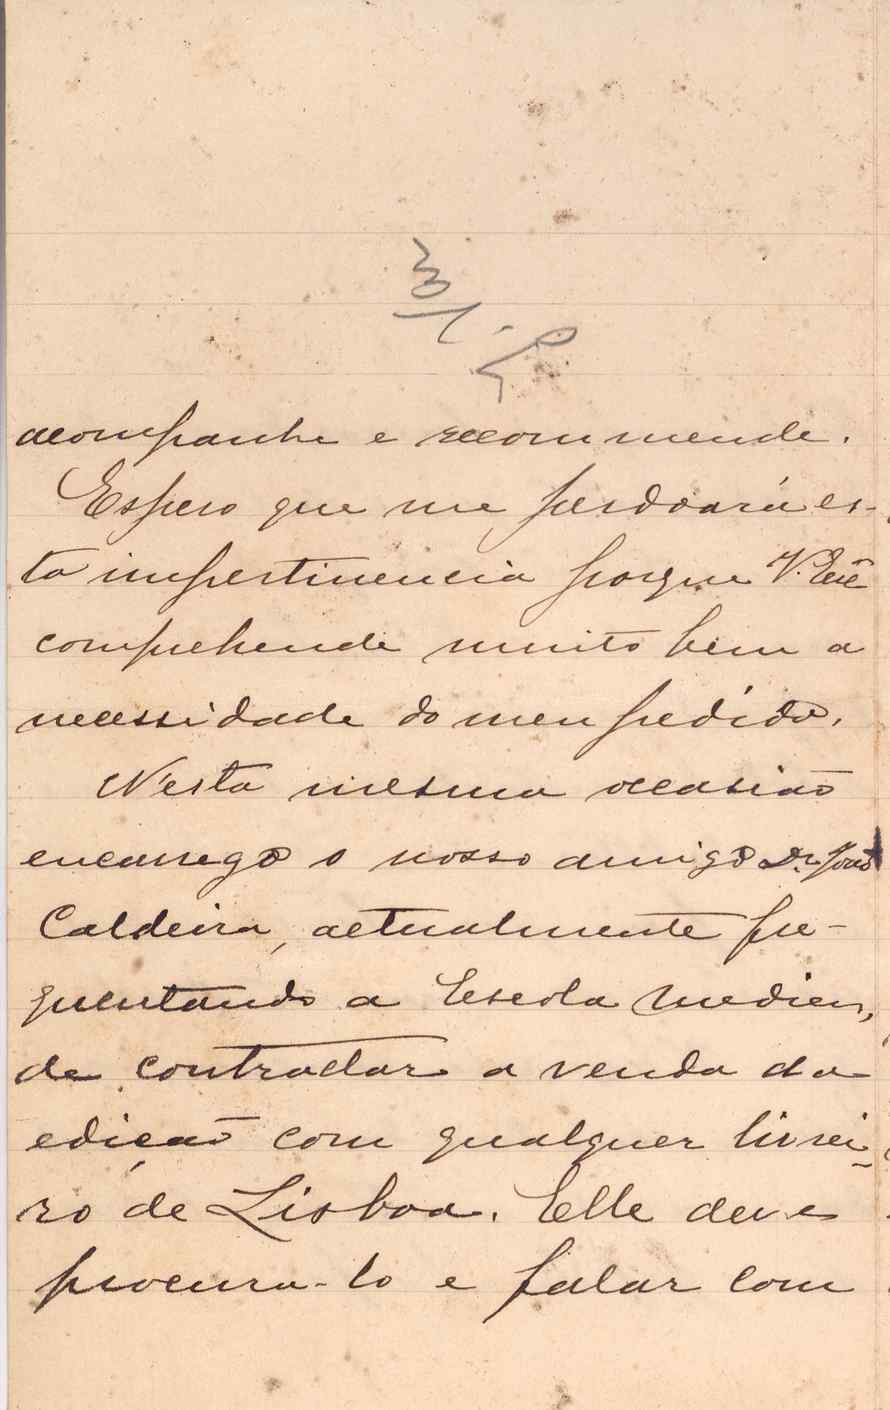 acompanhe e recommende.
Espero que me perdoará es-
ta impertinencia porque V. Exe
comprehende muito bem a
necessidade do meu pedido.
Nesta mesma occasião
encarrego o nosso amigo Dr. João
Caldeira, actualmente fre-
quentando a Escola Medica,
de contractar a venda da
edição com qualquer livrei-
ro de Lisboa. Elle deve
procura-lo e falar com